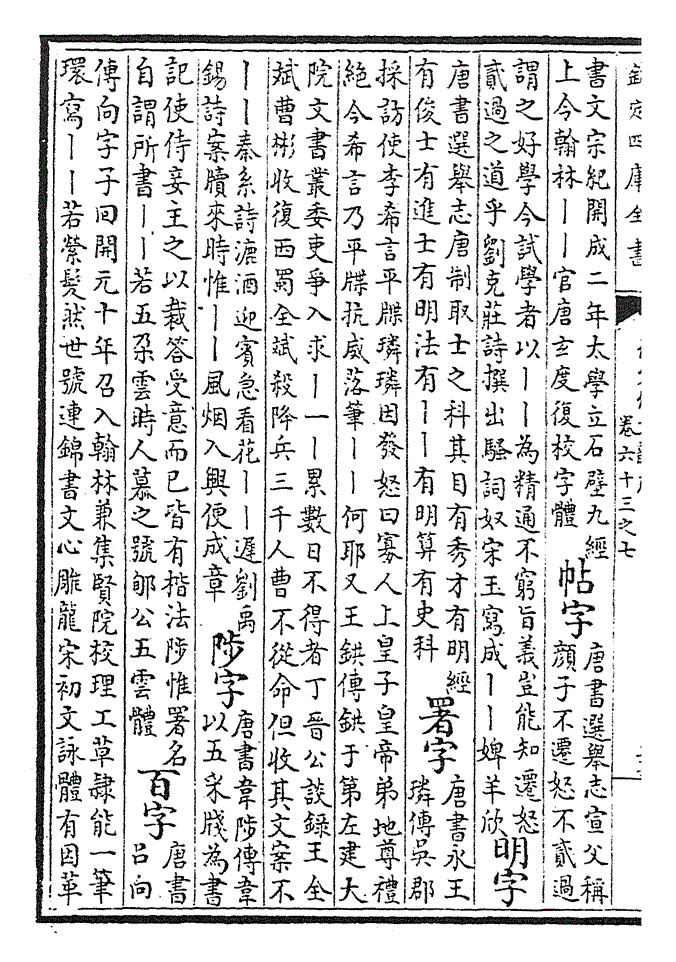 欽定四庫全書
卷六十三之七
書文宗紀開成二年太學立石壁九經
上今翰林丨丨官唐玄度復校字體
帖字
唐書選舉志宣父稱
顏子不遷怒不貳過
謂之好學今試學者以丨丨為精通不窮旨義豈能知遷怒
貳過之道乎劉克莊詩撰出騷詞奴宋玉寫成丨丨婢羊欣
明字
唐書選舉志唐制取士之科其目有秀才有明經
有俊士有進士有明法有丨丨有明算有史科
署字
唐書永王
璘傳吳郡
採訪使李希言平牒璘璘因發怒曰寡人上皇子皇帝弟地尊禮
絶今希言乃平牒抗威落筆丨丨何耶又王鉷傳鉷于第左建大
院文書叢委吏爭入求丨一丨累數日不得者丁晉公談録王全
斌曹彬收復西蜀全斌殺降兵三千人曹不從命但收其文案不
丨丨秦系詩漉酒迎賓急看花丨丨遲劉禹
錫詩案牘來時惟丨丨風烟入興便成章
陟字
唐書韋陟傳韋
以五采牋為書
記使侍妾主之以裁答受意而已皆有楷法陟惟署名
自謂所書丨丨若五朵雲時人慕之號郇公五雲體
百字
唐書
吕向
傳向字子回開元十年召入翰林兼集賢院校理工草隸能一筆
環寫丨丨若縈髮然世號連錦書文心雕龍宋初文詠體有因革